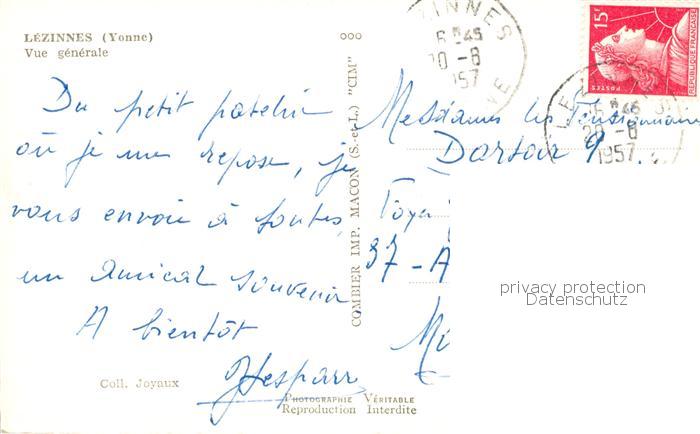 LÉZINNES (Yonne)
Vue générale
ooo
Du petit patelin
où je me repose, je
vous envoie à toutes,
un amical souvenir
A bientôt
Coll. Joyaux
COMBIER IMP. MACON (S.-et-L.) "CIM"
PHOTOGRAPHIE VÉRITABLE
Reproduction Interdite
ZINNES
6 H 45
20 -8
1957
15F
POSTES
REPUBLIQUE FRANÇAISE
LEZ
45
20 -8
1957
Mesdames les Pensionnaires
Dortoir 9
Foye
37 - A
privacy protection
Datenschutz